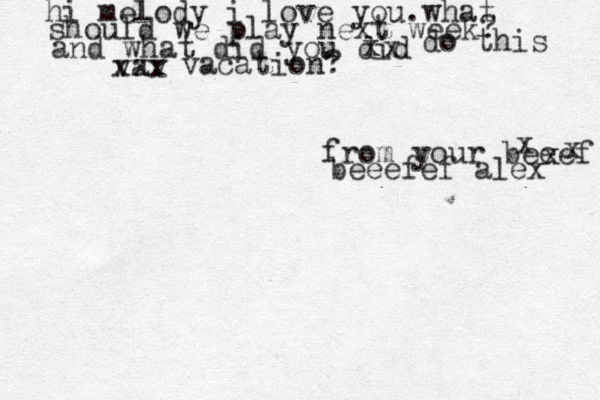 hi melody i love you.what
should we play next week?
and what did you did do this
vax vacation?
from your beexef
beeefef alex